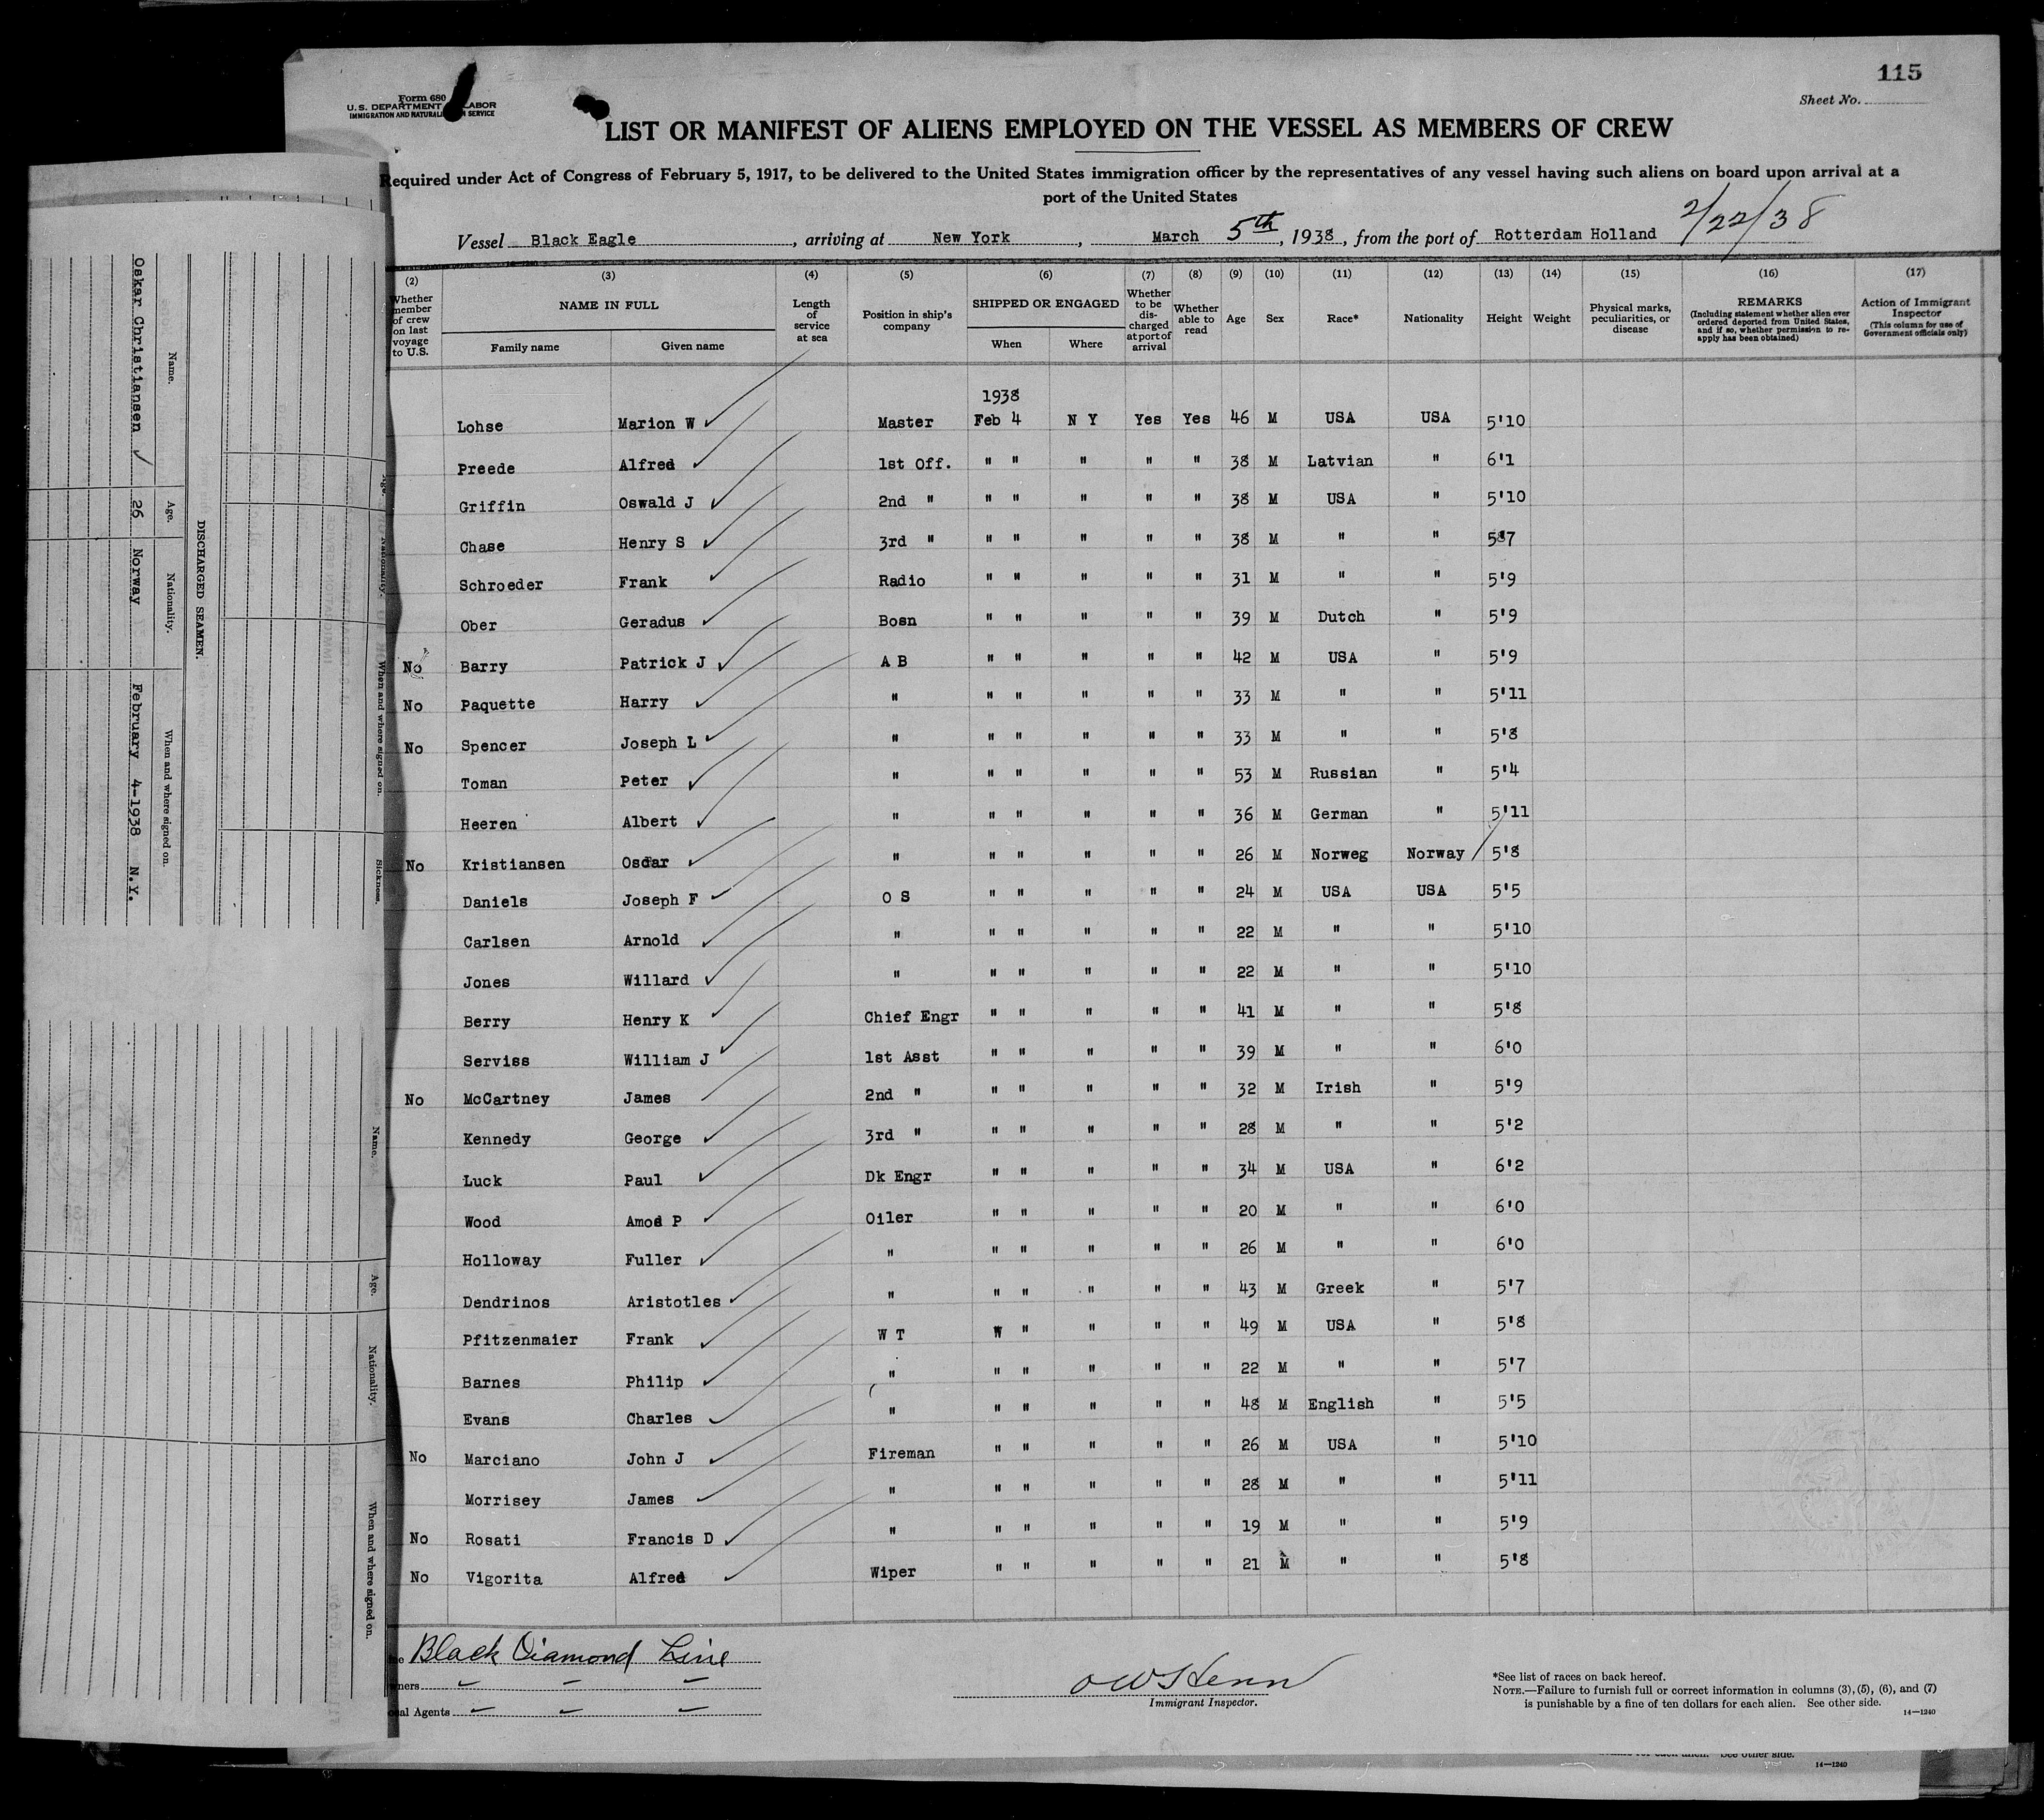 115
Form 680
U. S. DEPARTMENT LABOR
IMMIGRATION AND NATURALI N SERVICE
Sheet No.
LIST OR MANIFEST OF ALIENS EMPLOYED ON THE VESSEL AS MEMBERS OF CREW
Required under Act of Congress of February 5, 1917, to be delivered to the United States immigration officer by the representatives of any vessel having such aliens on board upon arrival at a
port of the United States
2/22/38
Vessel Black Eagle, arriving at New York, March 5th, 1938, from the port of Rotterdam Holland
(2) (3) (4) (5) (6) (7) (8) (9) (10) (11) (12) (13) (14) (15) (16) (17)
Whether member of crew on last voyage to U.S.
NAME IN FULL
Family name Given name
Length of service at sea
Position in ship's company
SHIPPED OR ENGAGED
When Where
Whether to be discharged at port of arrival
Whether able to read
Age Sex Race* Nationality Height Weight
Physical marks, peculiarities, or disease
REMARKS
(Including statement whether alien ever ordered deported from United States, and if so, whether permission to re-apply has been obtained)
Action of Immigrant Inspector
(This column for use of Government officials only)
1938
Lohse Marion W Master Feb 4 N Y Yes Yes 46 M USA USA 5'10
Preede Alfred 1st Off. " " " " " 38 M Latvian " 6'1
Griffin Oswald J 2nd " " " " " " 38 M USA " 5'10
Chase Henry S 3rd " " " " " " 38 M " " 5'7
Schroeder Frank Radio " " " " " 31 M " " 5'9
Ober Geradus Bosn " " " " " 39 M Dutch " 5'9
No Barry Patrick J A B " " " " " 42 M USA " 5'9
No Paquette Harry " " " " " " 33 M " " 5'11
No Spencer Joseph L " " " " " " 33 M " " 5'8
Toman Peter " " " " " " 53 M Russian " 5'4
Heeren Albert " " " " " " 36 M German " 5'11
No Kristiansen Oscar " " " " " " 26 M Norweg Norway 5'8
Daniels Joseph F O S " " " " " 24 M USA USA 5'5
Carlsen Arnold " " " " " " 22 M " " 5'10
Jones Willard " " " " " " 22 M " " 5'10
Berry Henry K Chief Engr " " " " " 41 M " " 5'8
Serviss William J 1st Asst " " " " " 39 M " " 6'0
No McCartney James 2nd " " " " " " 32 M Irish " 5'9
Kennedy George 3rd " " " " " " 28 M " " 5'2
Luck Paul Dk Engr " " " " " 34 M USA " 6'2
Wood Amos P Oiler " " " " " 20 M " " 6'0
Holloway Fuller " " " " " " 26 M " " 6'0
Dendrinos Aristotles " " " " " " 43 M Greek " 5'7
Pfitzenmaier Frank W T " " " " " 49 M USA " 5'8
Barnes Philip " " " " " " 22 M " " 5'7
Evans Charles " " " " " " 48 M English " 5'5
No Marciano John J Fireman " " " " " 26 M USA " 5'10
Morrisey James " " " " " " 28 M " " 5'11
No Rosati Francis D " " " " " " 19 M " " 5'9
No Vigorita Alfred Wiper " " " " " 21 M " " 5'8
Black Diamond Line
Owners
Local Agents
Immigrant Inspector.
*See list of races on back hereof.
NOTE.—Failure to furnish full or correct information in columns (3), (5), (6), and (7)
is punishable by a fine of ten dollars for each alien. See other side.
14—1240
See other side.
14—1240
DISCHARGED SEAMEN.
Name. Age. Nationality. When and where signed on.
Oskar Christiansen 26 Norway February 4-1938 N.Y.
When and where signed on. Sickness.
Name. Age. Nationality. When and where signed on.